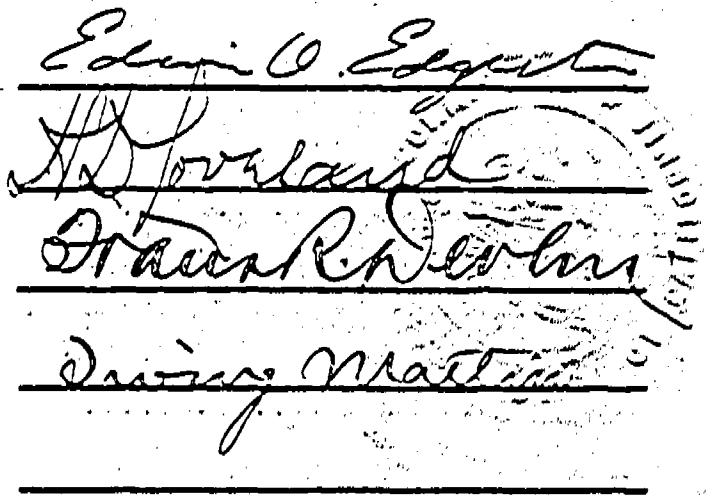 Edwin O. Edgerton
H. D. Loveland
Frank R. Devlin
Irving Martin